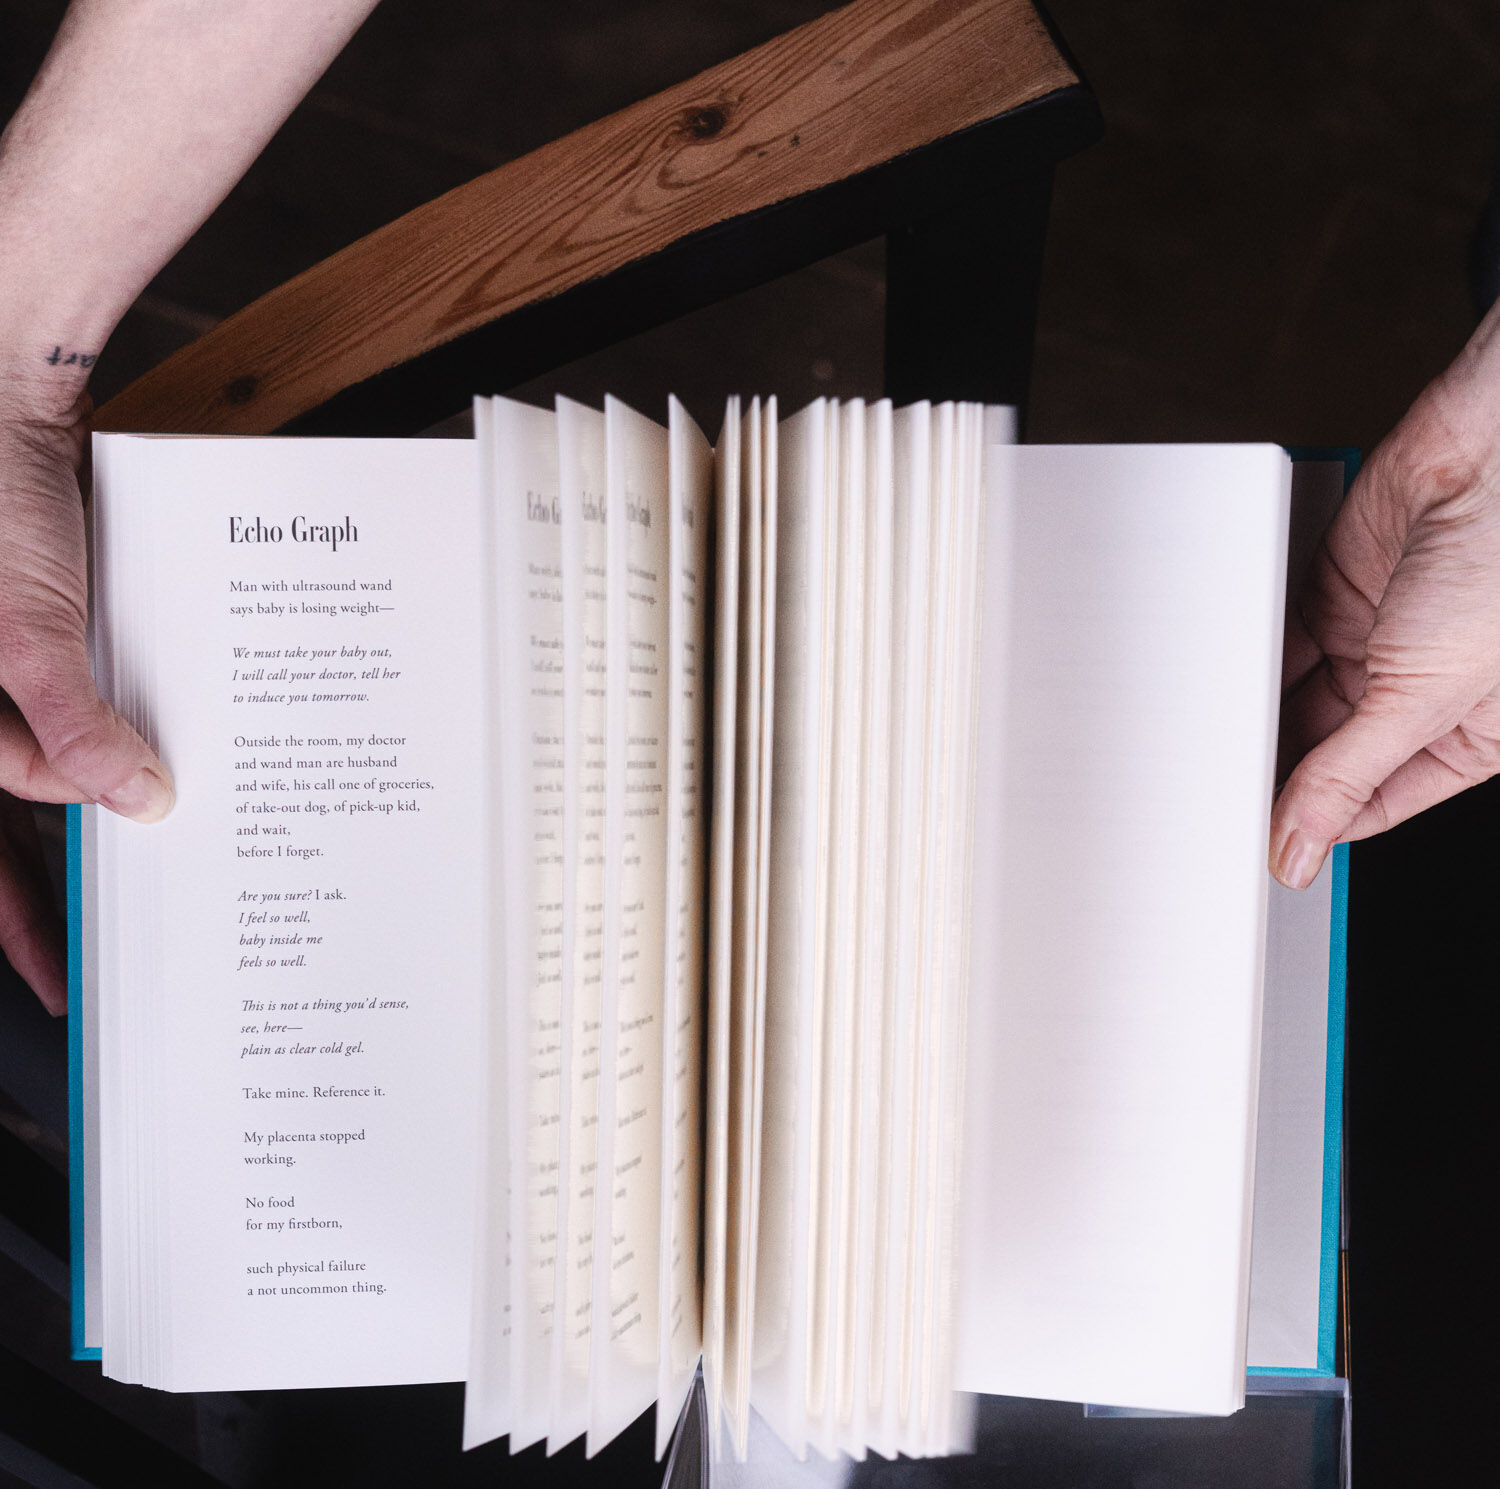 art
Echo Graph
Man with ultrasound wand
says baby is losing weight—
We must take your baby out,
I will call your doctor, tell her
to induce you tomorrow.
Outside the room, my doctor
and wand man are husband
and wife, his call one of groceries,
of take-out dog, of pick-up kid,
and wait,
before I forget.
Are you sure? I ask.
I feel so well,
baby inside me
feels so well.
This is not a thing you’d sense,
see, here—
plain as clear cold gel.
Take mine. Reference it.
My placenta stopped
working.
No food
for my firstborn,
such physical failure
a not uncommon thing.